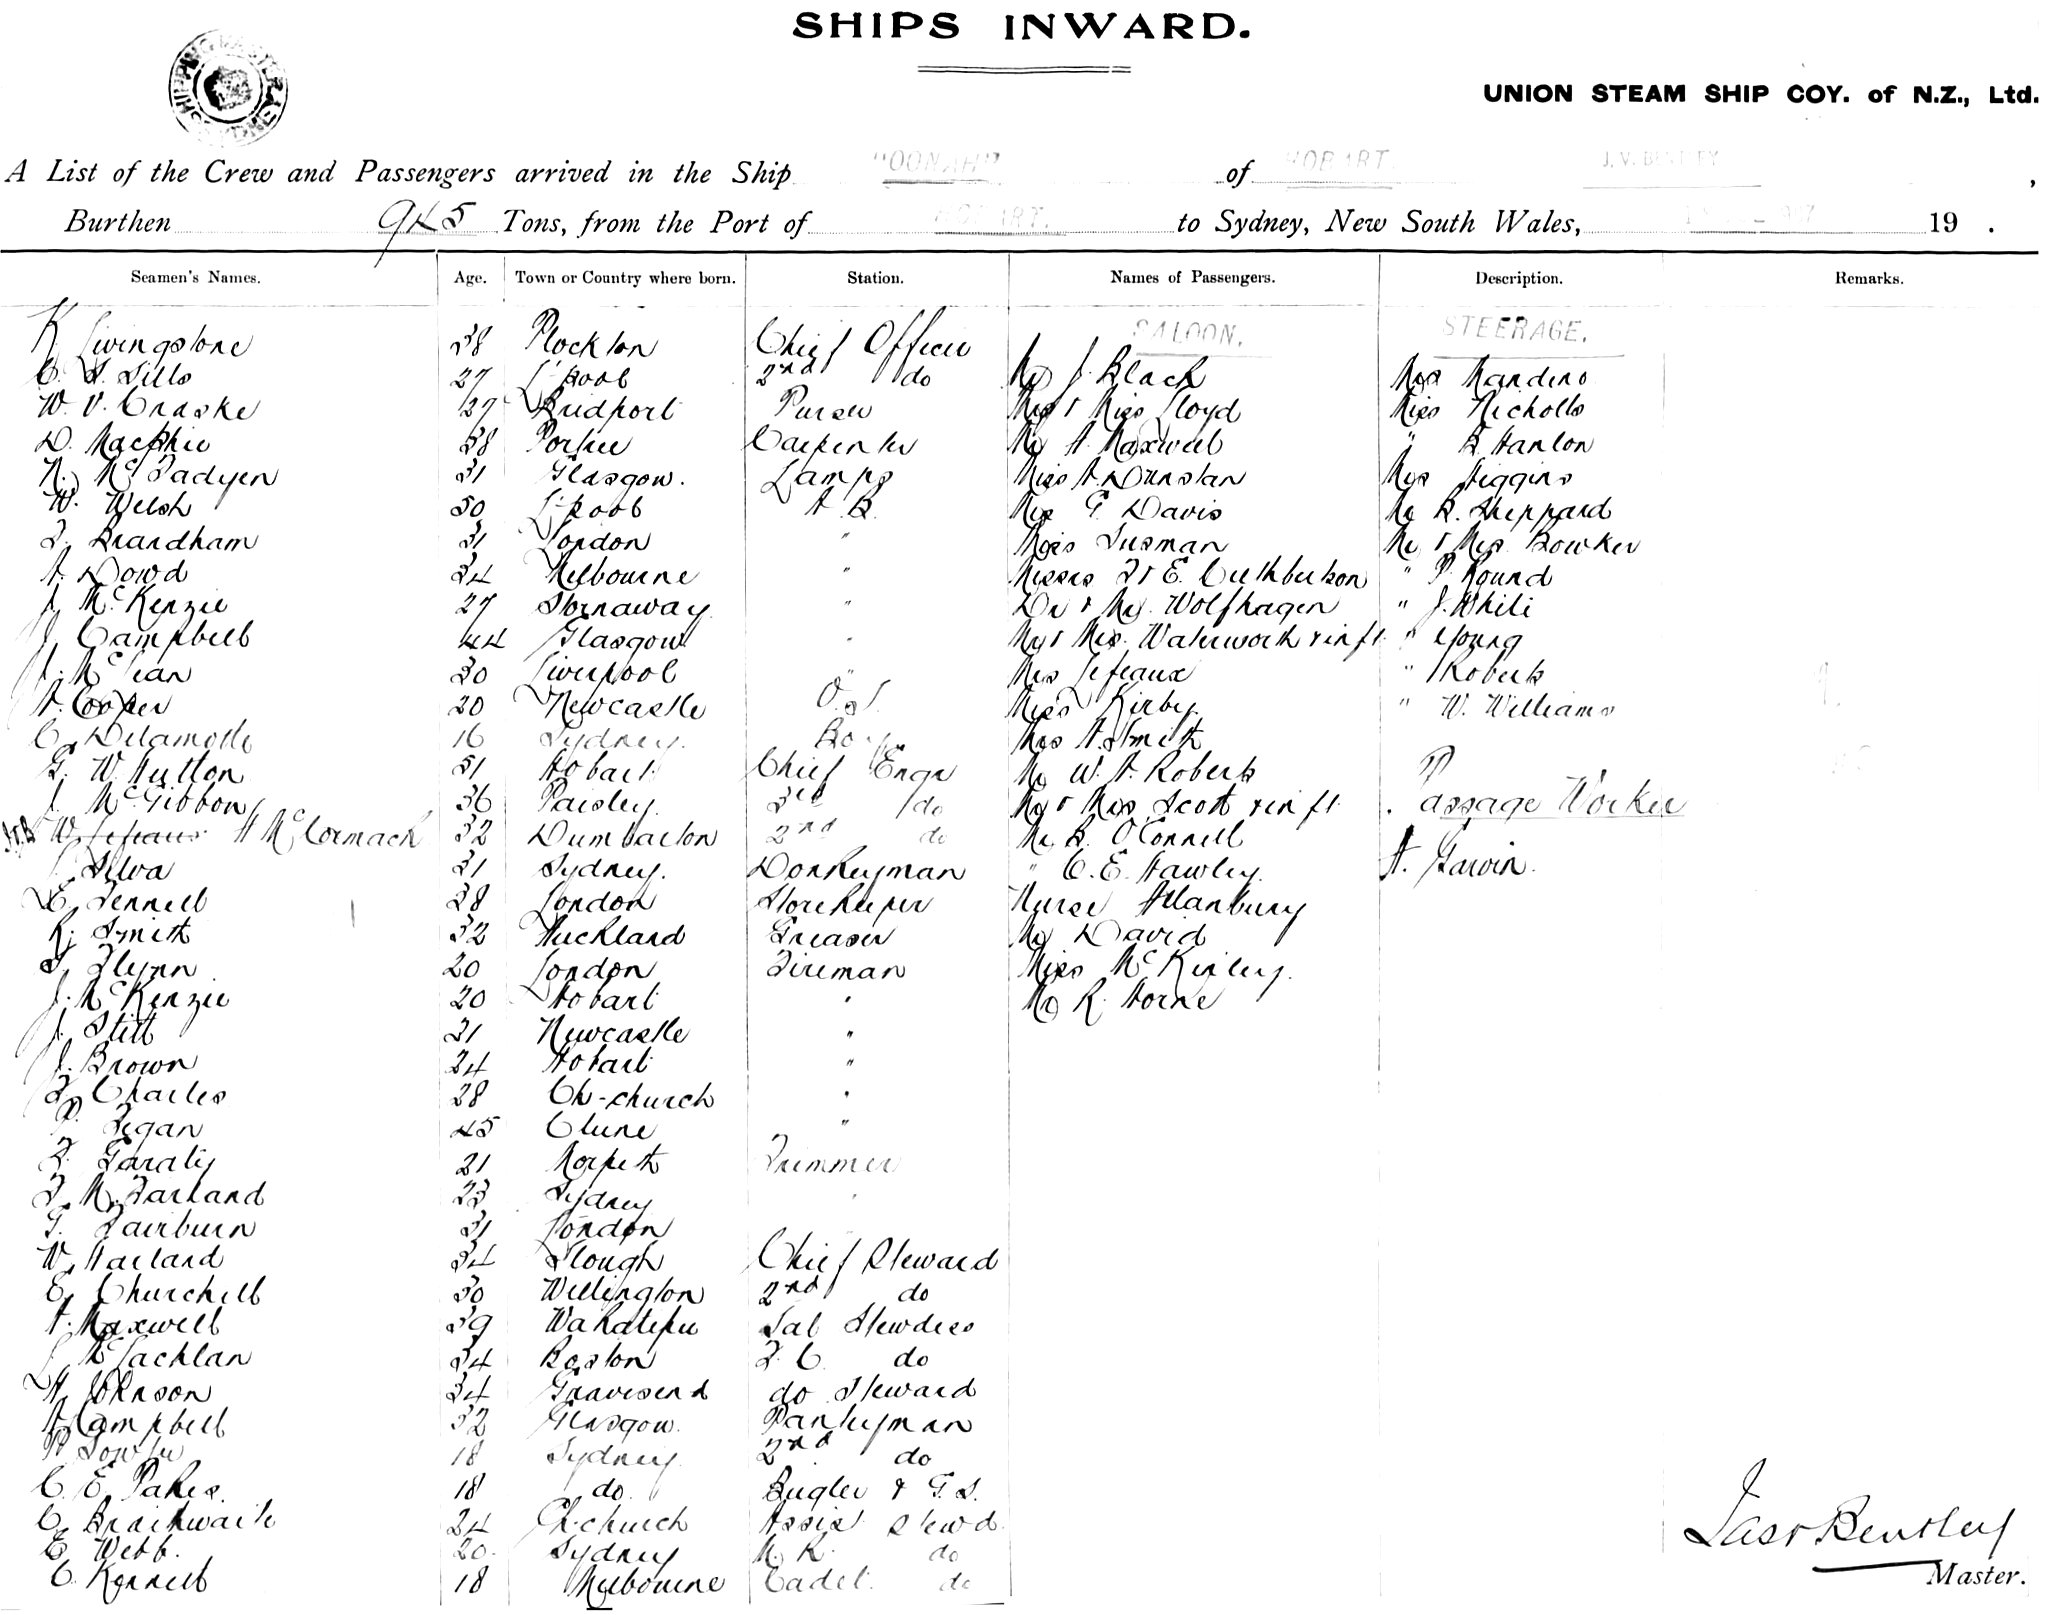 SHIPS INWARD.
UNION STEAM SHIP COY. of N.Z., Ltd.
A List of the Crew and Passengers arrived in the Ship "OONAH" of HOBART. J. V. BENTLEY,
Burthen 945 Tons, from the Port of HOBART. to Sydney, New South Wales, 19 .
Seamen's Names. Age. Town or Country where born. Station. Names of Passengers. Description. Remarks.
SALOON. STEERAGE.
K Livingstone 38 Plockton Chief Officer
C. S. Sills 27 L'pool 2nd do Mr J. Black Mrs Mandeno
W. V. Craske 27 Bridport Purser Mrs & Miss Lloyd Miss Nicholls
D. MacPhie 38 Portree Carpenter Mr A. Maxwell " B Hanlon
N. McFadyen 31 Glasgow. Lamps Miss A. Dunstan Mrs Higgins
W. Welsh 50 L'pool A. B. Mrs G. Davis Mr B. Sheppard
F. Brandham 31 London " Miss Susman Mr & Mrs Bowker
A. Dowd 34 Melbourne " Misses F & E. Cuthbertson " P. Round
J. McKenzie 27 Stornaway " Dr & Mrs. Wolfhagen " J. White
J. Campbell 44 Glasgow " Mr & Mrs. Waterworth & inft. " Young
J. McLean 30 Liverpool " Mrs Lefeaux " Roberts
A. Cooper 20 Newcastle O.S. Miss Kirby. " W. Williams
C. Delamotte 16 Sydney. Boy Mrs A. Smith
G. W. Hutton 51 Hobart Chief Engr Mr W. A. Roberts
J. McGibbon 36 Paisley. 3rd do Mr & Mrs Scott & inft. Passage Worker
W. Lefeaux H McCormack 32 Dumbarton 2nd do Mr B. O'Connell
Silva 31 Sydney. Donkeyman " C. E. Hawley. A. Garvin.
E. Fennell 38 London Storekeeper Nurse Atlanbury
R. Smith 32 Auckland Greaser Mr David
Flynn 20 London Fireman Miss McKinley.
J. McKenzie 20 Hobart " Mr R. Horne
J. Still 21 Newcastle "
J. Brown 24 Hobart "
F. Charles 28 Ch-church "
P. Fegan 45 Clune "
Garaty 21 Morpeth Trimmer
F. McFarland 23 Sydney "
G. Fairburn 31 London
W. Harland 34 Slough Chief Steward
E. Churchill 30 Wellington 2nd do
A. Maxwell 39 Wakatipu Sal Stewdess
McLachlan 34 Boston F. C. do
A. Johnson 34 Gravesend do Steward
A. Campbell 32 Glasgow. Pantryman
18 Sydney 2nd do
C. E. Pakes. 18 do. Bugler & G. S.
C. Braithwaite 24 Ch-church Assist Stewd.
E. Webb. 20. Sydney M. R. do
C. Kennett 18 Melbourne Cadet. do
Jas V Bentley
Master.